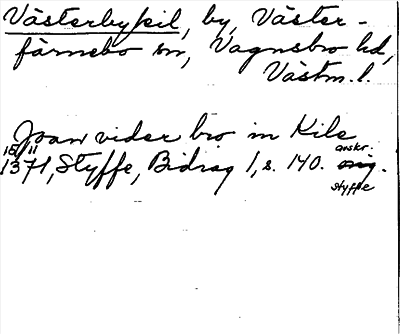 Västerbykil, by, Väster-
färnebo sn, Vagnsbro hd,
Västm. l.
Joan vider bro in Kils
15/11 avskr.
1371, Styffe, Bidrag 1, s. 140. orig.
Styffe